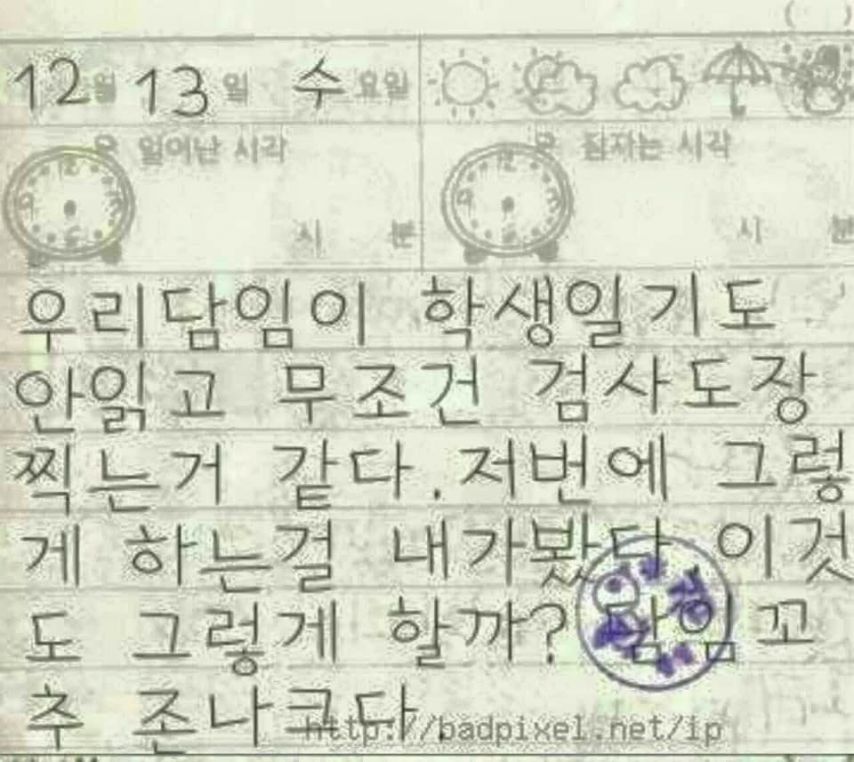 12월 13일 수요일
일어난 시각 잠자는 시각
시 분 시 분
우리담임이 학생일기도
안읽고 무조건 검사도장
찍는거 같다. 저번에 그렇
게 하는걸 내가봤다. 이것
도 그렇게 할까? 담임 꼬
추 존나크다.
http://badpixel.net/ip